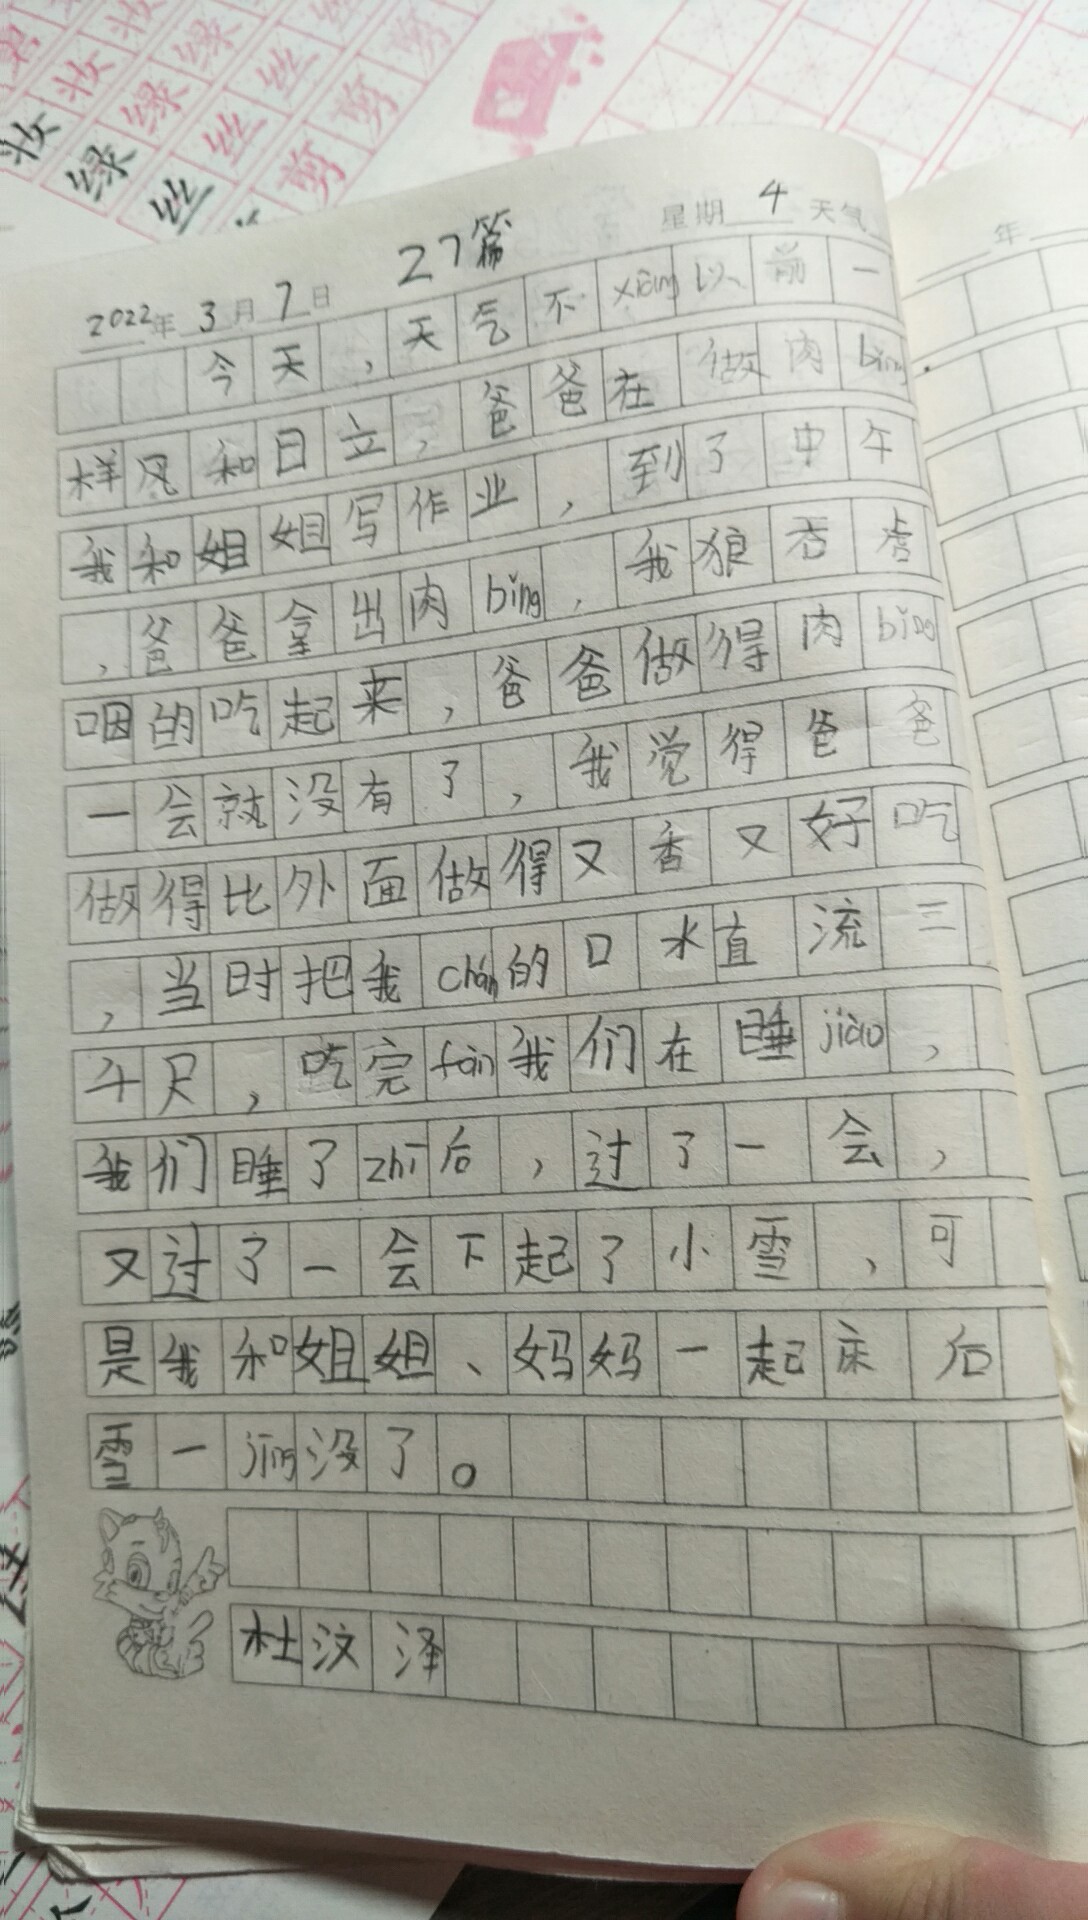 妆 妆 妆
绿 绿 绿 绿
丝 丝 丝 丝
剪 剪 剪
27篇
星期 4 天气
2022年 3月 7日
年
今天，天气不xiàng以前一
样风和日立，爸爸在做肉bǐng
我和姐姐写作业，到了中午
，爸爸拿出肉bǐng，我狼吞虎
咽的吃起来，爸爸做得肉bǐng
一会就没有了，我觉得爸爸
做得比外面做得又香又好吃
，当时把我chán的口水直流三
千尺，吃完fàn我们在睡jiào，
我们睡了zhī后，过了一会，
又过了一会下起了小雪，可
是我和姐姐、妈妈一起床后
雪一jǐng没了。
杜汶泽